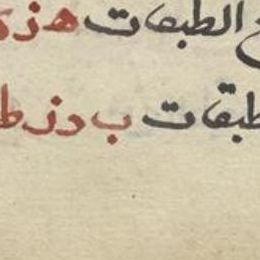 الطبقات هزح
طبقات ب دزط